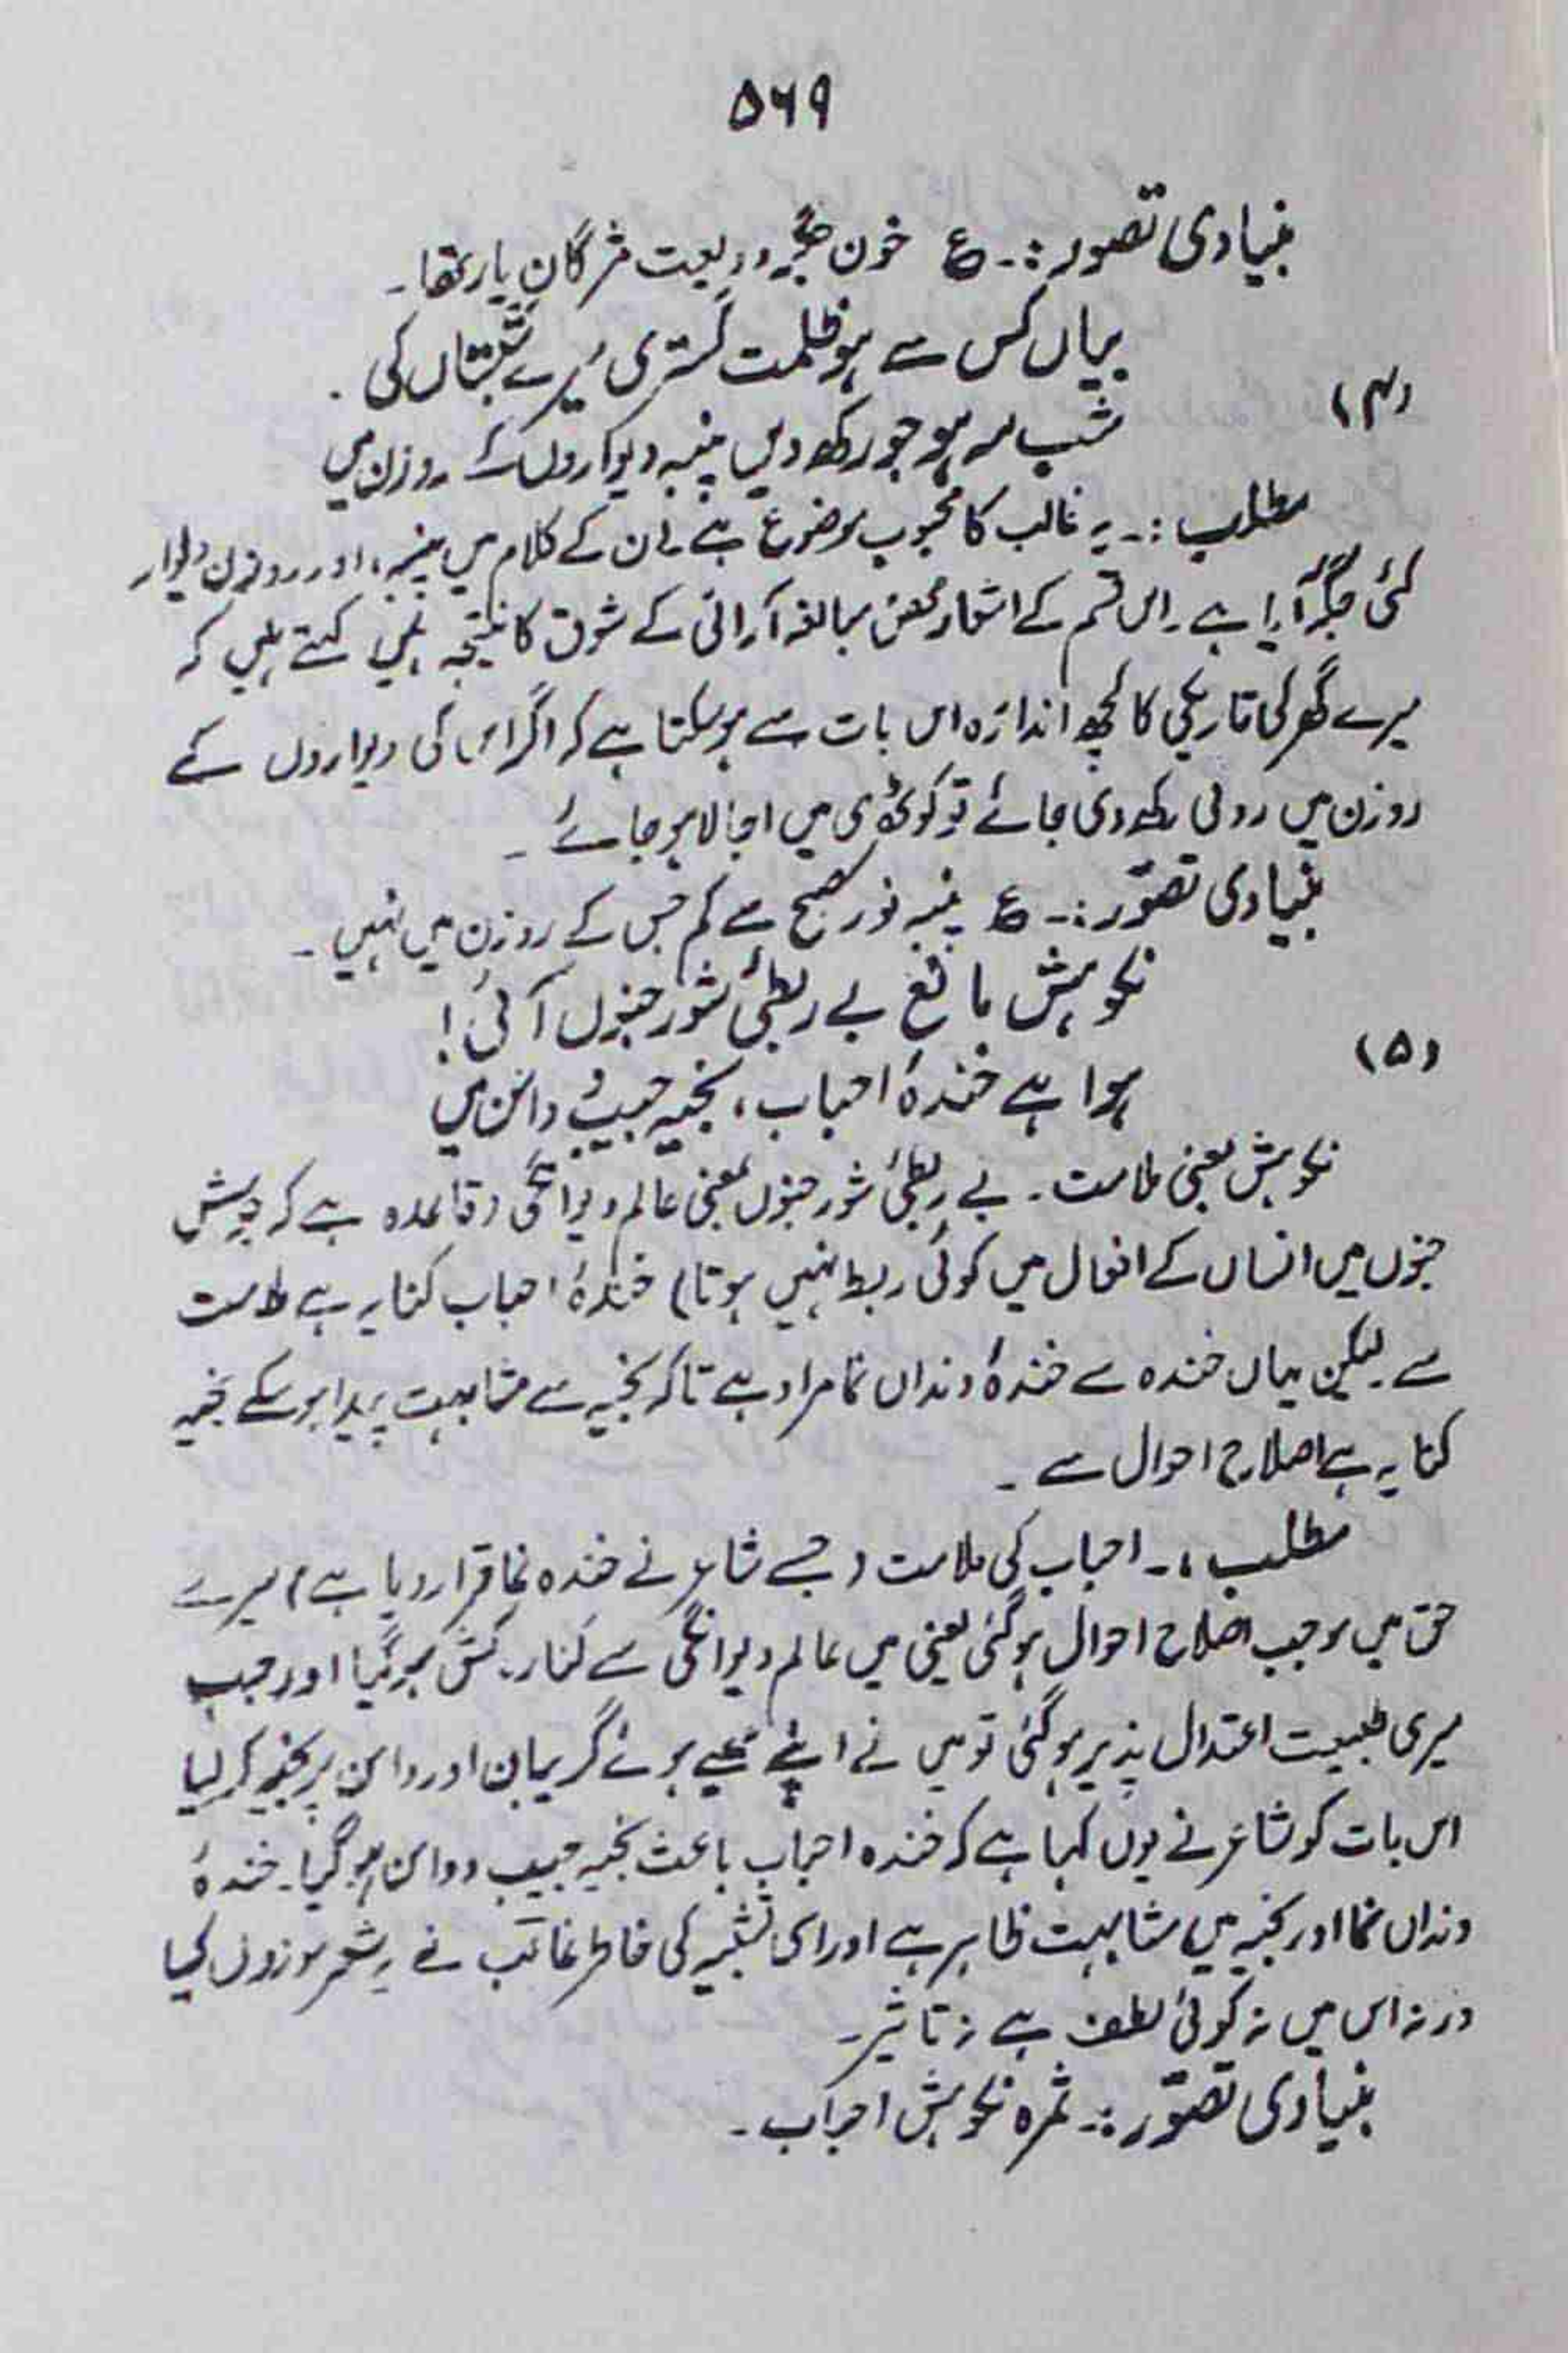 ۵۶۹
بنیادی تصور:۔ ع خون جگر ودیعت مژگان یار تھا۔
بیاں کس سے ہو ظلمت گستری میرے شبستاں کی۔
(۴)
شب مہ ہو جو رکھ دیں پنبہ دیواروں کے روزن میں
مطلب:۔ یہ غالب کا محبوب موضوع ہے۔ ان کے کلام میں پنبہ، اور روزن دیوار
کئی جگہ آیا ہے۔ اس قسم کے اشعار محض مبالغہ آرائی کے شوق کا نتیجہ ہیں کہتے ہیں کہ
میرے گھر کی تاریکی کا کچھ اندازہ اس بات سے ہو سکتا ہے کہ اگر اس کی دیواروں کے
روزن میں روئی رکھ دی جائے تو کوٹھری میں اجالا ہو جائے۔
بنیادی تصوّر:۔ ع پنبہ نور صبح سے کم جس کے روزن میں نہیں۔
نکوہش مانع بے ربطیٔ شور جنوں آئی!
(۵)
ہوا ہے خندۂ احباب، بخیہ جیب و دامن میں
نکوہش یعنی ملامت۔ بے ربطیٔ شور جنوں یعنی عالم دیوانگی (قاعدہ ہے کہ جوش
جنوں میں انساں کے افعال میں کوئی ربط نہیں ہوتا) خندۂ احباب کنایہ ہے ملامت
سے لیکن یہاں خندہ سے خندۂ دنداں نما مراد ہے تاکہ بخیہ سے مشابہت پیدا ہو سکے بخیہ
کنایہ ہے اصلاح احوال سے۔
مطلب:۔ احباب کی ملامت (جسے شاعر نے خندہ نما قرار دیا ہے) میرے
حق میں موجب اصلاح احوال ہو گئی یعنی میں عالم دیوانگی سے کنارہ کش ہو گیا اور جب
میری طبیعت اعتدال پذیر ہو گئی تو میں نے اپنے پھٹے ہوئے گریبان اور دامن پر بخیہ کر لیا
اس بات کو شاعر نے یوں کہا ہے کہ خندہ احباب باعث بخیہ جیب و دامن ہو گیا۔ خندۂ
دنداں نما اور بخیہ میں مشابہت ظاہر ہے اور اسی تشبیہ کی خاطر غالب نے یہ شعر موزوں کیا
ورنہ اس میں نہ کوئی لطف ہے نہ تاثیر۔
بنیادی تصوّر:۔ ثمرہ نکوہش احباب۔